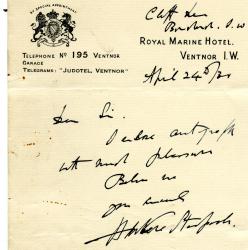 BY SPECIAL APPOINTMENT
TELEPHONE No 195 VENTNOR
GARAGE
TELEGRAMS: "JUDOTEL, VENTNOR"
ROYAL MARINE HOTEL.
VENTNOR I.W.
April 24th/
Dear Sir.
I enclose autograph
with much pleasure
Believe me
yours sincerely